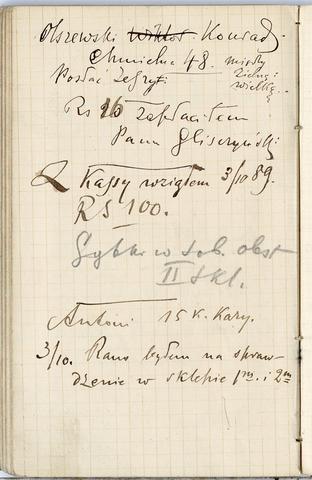 Olszewski Wiktor Konrad
Chmielna 48. między
Zielną i
wielką.
Posłać zeszyt
Rs 26 zapłaciłem
Panu Gliszczyński
Z Kassy wziąłem 3/10 89.
RS 100.
w sob. obst
II skl.
Antoni 15 k. Kary.
3/10. Rano byłem na spraw-
dzenie w sklepie 1m. i 2m